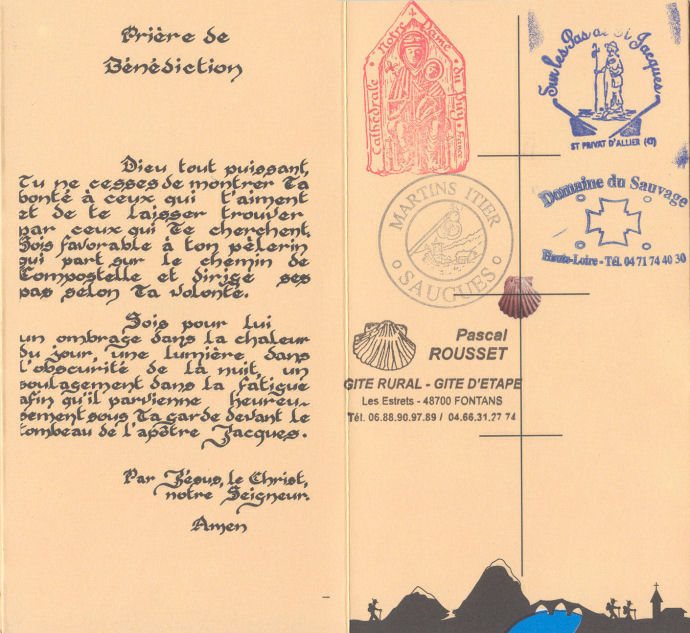 Prière de
Bénédiction
Dieu tout puissant,
Tu ne cesses de montrer Ta
bonté à ceux qui t'aiment
et de te laisser trouver
par ceux qui Te cherchent.
Sois favorable à ton pèlerin
qui part sur le chemin de
Compostelle et dirige ses
pas selon Ta volonté.
Sois pour lui
un ombrage dans la chaleur
du jour, une lumière dans
l'obscurité de la nuit, un
soulagement dans la fatigue
afin qu'il parvienne heureu-
sement sous Ta garde devant le
tombeau de l'apôtre Jacques.
Par Jésus, le Christ,
notre Seigneur.
Amen
Cathédrale • Notre Dame du Puy •
Sur les Pas de St Jacques
ST PRIVAT D'ALLIER (43)
MARTINS ITIER
• SAUGUES •
Domaine du Sauvage
Haute-Loire - Tél. 04 71 74 40 30
Pascal
ROUSSET
GITE RURAL - GITE D'ETAPE
Les Estrets - 48700 FONTANS
Tél. 06.88.90.97.89 / 04.66.31.27 74